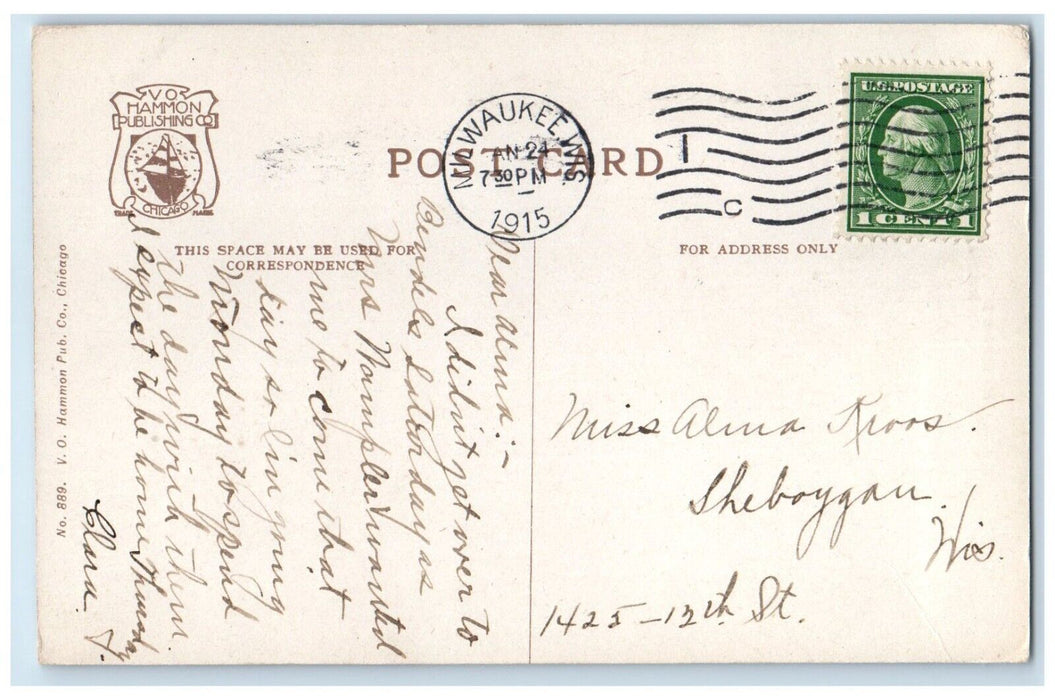 V.O.
HAMMON
PUBLISHING CO
CHICAGO
TRADE MARK
POST CARD
MILWAUKEE, WIS.
JAN 24
7 30 PM
1915
C
U.S. POSTAGE
1 CENT 1
THIS SPACE MAY BE USED FOR
CORRESPONDENCE
FOR ADDRESS ONLY
No. 889. V. O. Hammon Pub. Co., Chicago
Dear Alma:–
I didn't get over to
Saturday as
Mrs wanted
me to come that
day so I'm going
Monday to spend
the day with them
I expect to be home Thursday
Clara. F.
Miss Alma Kroos.
Sheboygan
Wis.
1425–12th St.